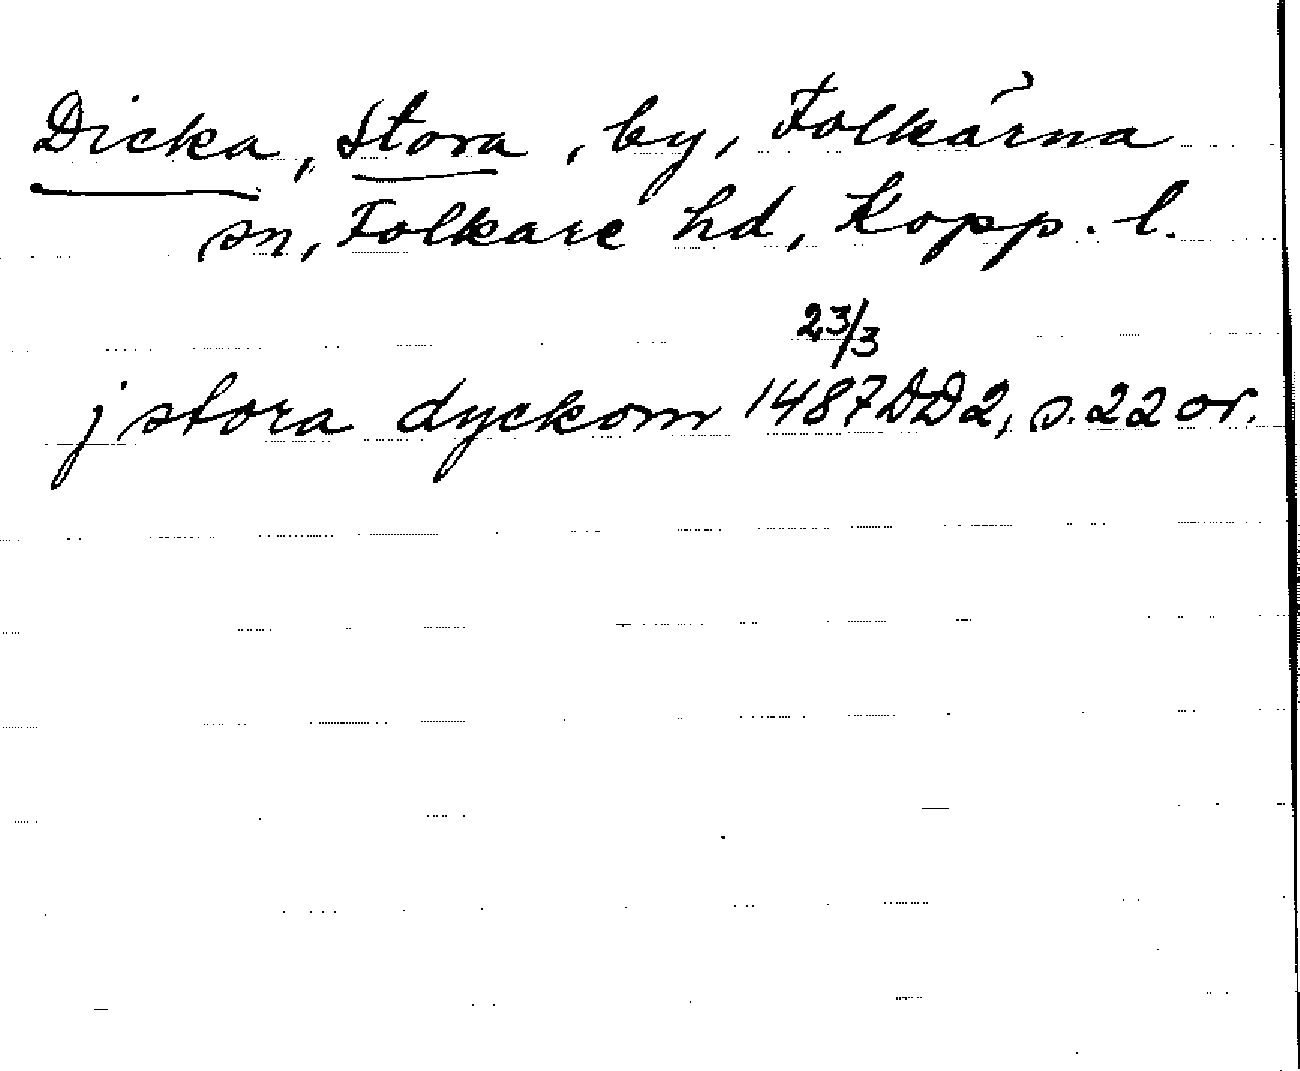 Dicka, Stora, by, Folkärna
sn, Folkare hd, Kopp. l.
23/3
j stora dyckom 1487 DD2, s. 22 or.